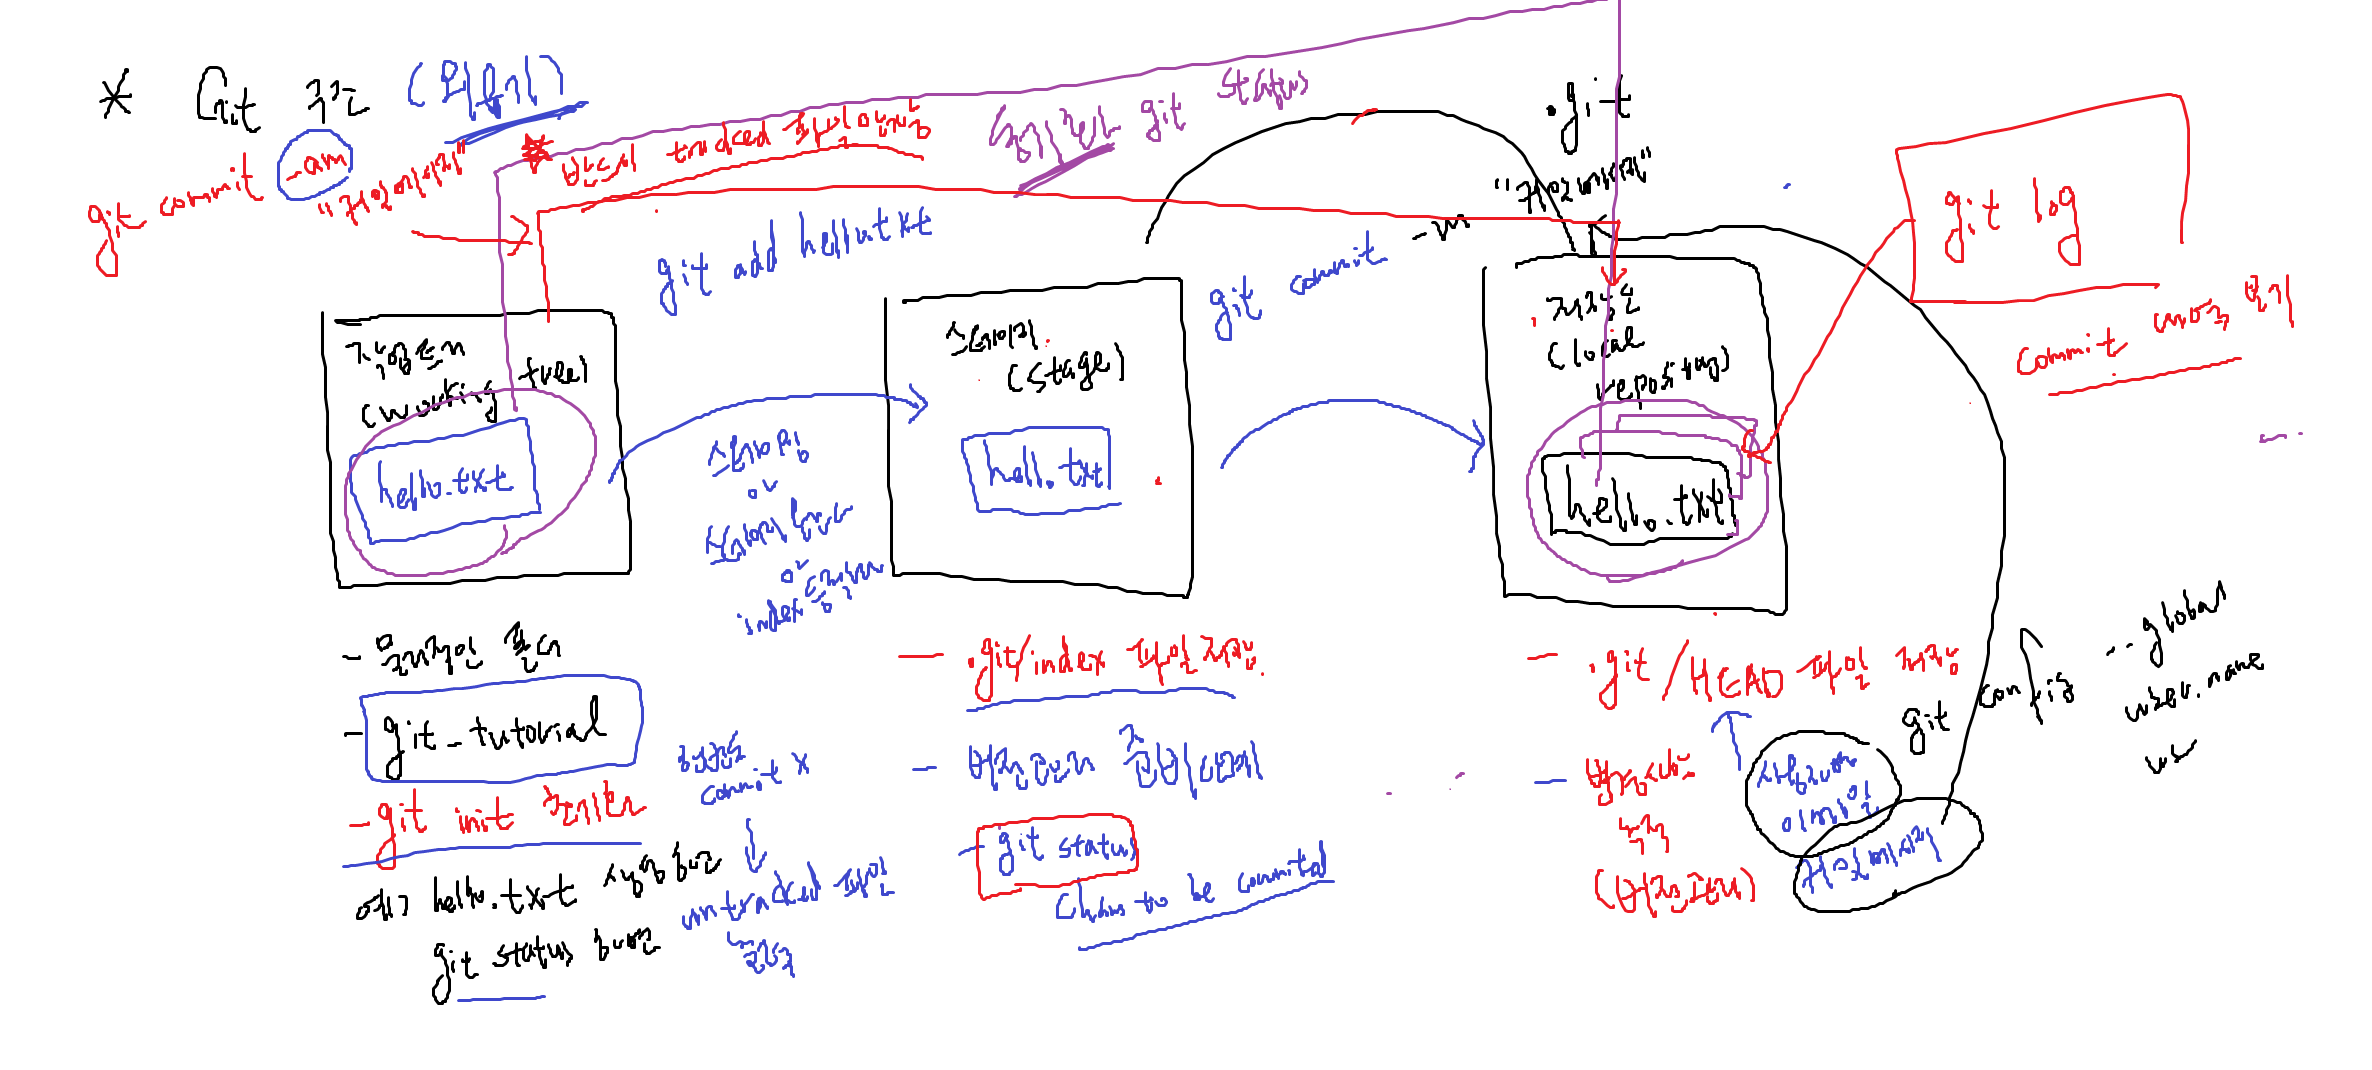 * Git 구조 (외우기)
git commit -am "커밋메시지"
반드시 tracked 파일이어야
동기화만 git status
.git
"커밋메시지"
git add hello.txt
git commit -m
git log
commit 내역 보기
작업트리
(working tree)
hello.txt
스테이징
or
index
스테이지
(stage)
hello.txt
저장소
(local
repository)
hello.txt
- 물리적인 폴더
- git_tutorial
- git init 초기화
여기 hello.txt
git status 하면
commit x
untracked 파일
- .git/index 파일 저장.
- 버전관리 준비단계
- git status
to be commited
- .git/HEAD 파일 저장
(버전관리)
이메일
커밋메시지
git config --global
user.name